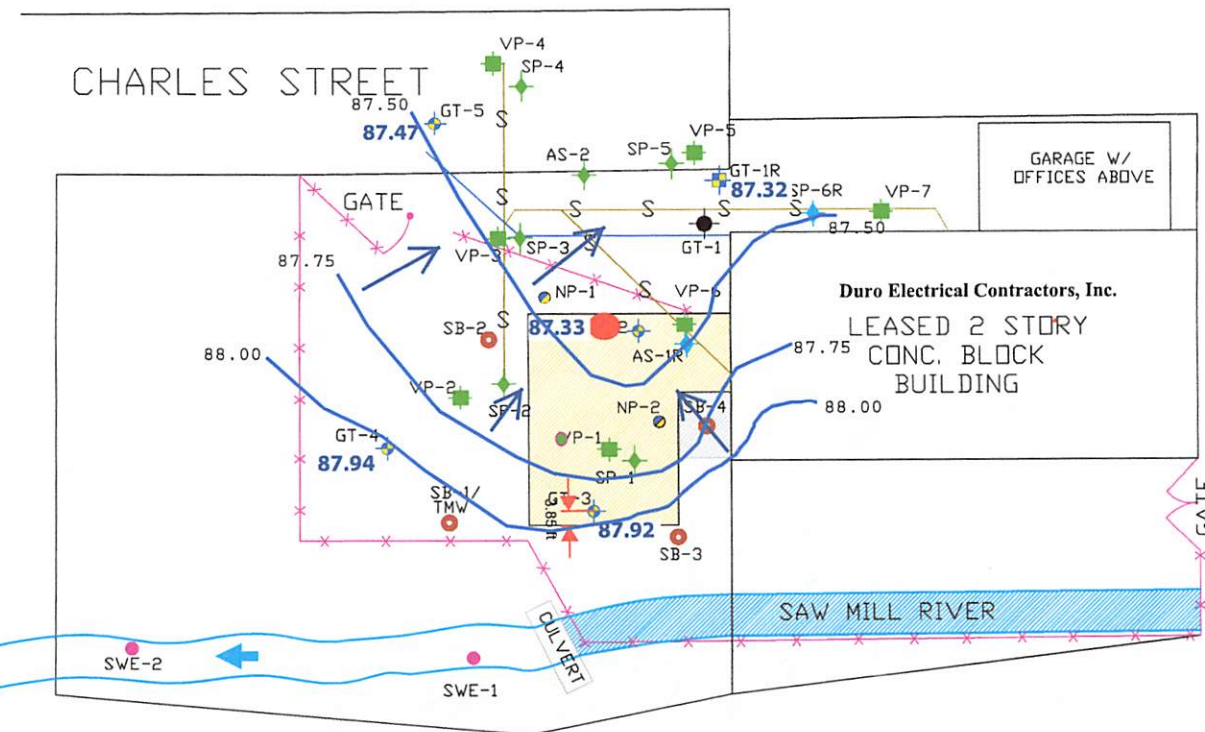 VP-4
SP-4
CHARLES STREET
87.50
GT-5
87.47
S
VP-5
SP-5
AS-2
GARAGE W/
OFFICES ABOVE
GT-1R
87.32
SP-6R
VP-7
GATE
S
S
S
S
S
87.50
GT-1
VP-3
SP-3
S
87.75
NP-1
S
VP-6
Duro Electrical Contractors, Inc.
LEASED 2 STORY
CONC. BLOCK
BUILDING
SB-2
S
87.33
2
AS-1R
87.75
88.00
VP-2
SP-2
NP-2
SB-4
88.00
GT-4
87.94
VP-1
SP-1
SB-1/
TMW
GT-3
3.85ft
87.92
SB-3
GATE
CULVERT
SAW MILL RIVER
SWE-2
SWE-1